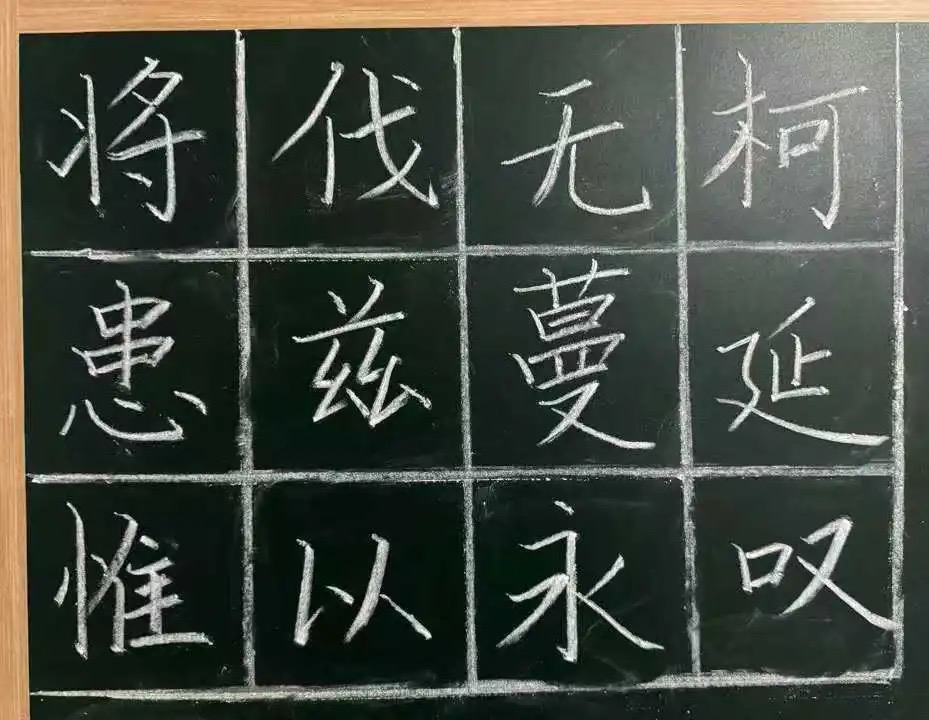 将伐无柯
患兹蔓延
惟以永叹